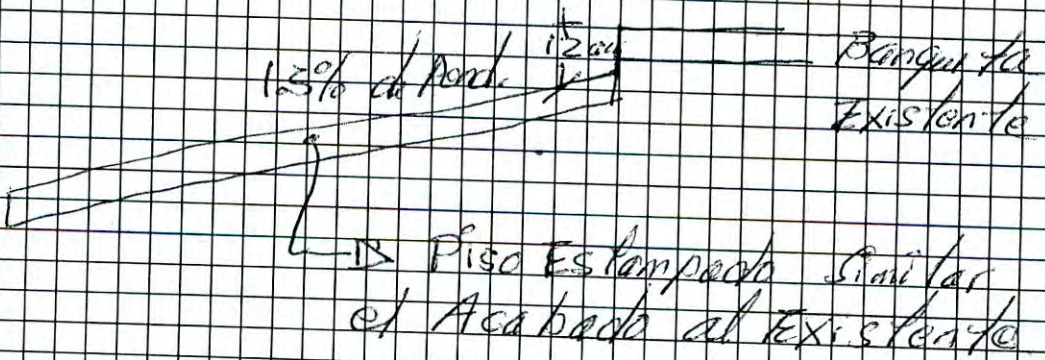 13% d Pend.
12 cm
Banqueta
Existente
Piso Estampado Similar
el Acabado al Existente